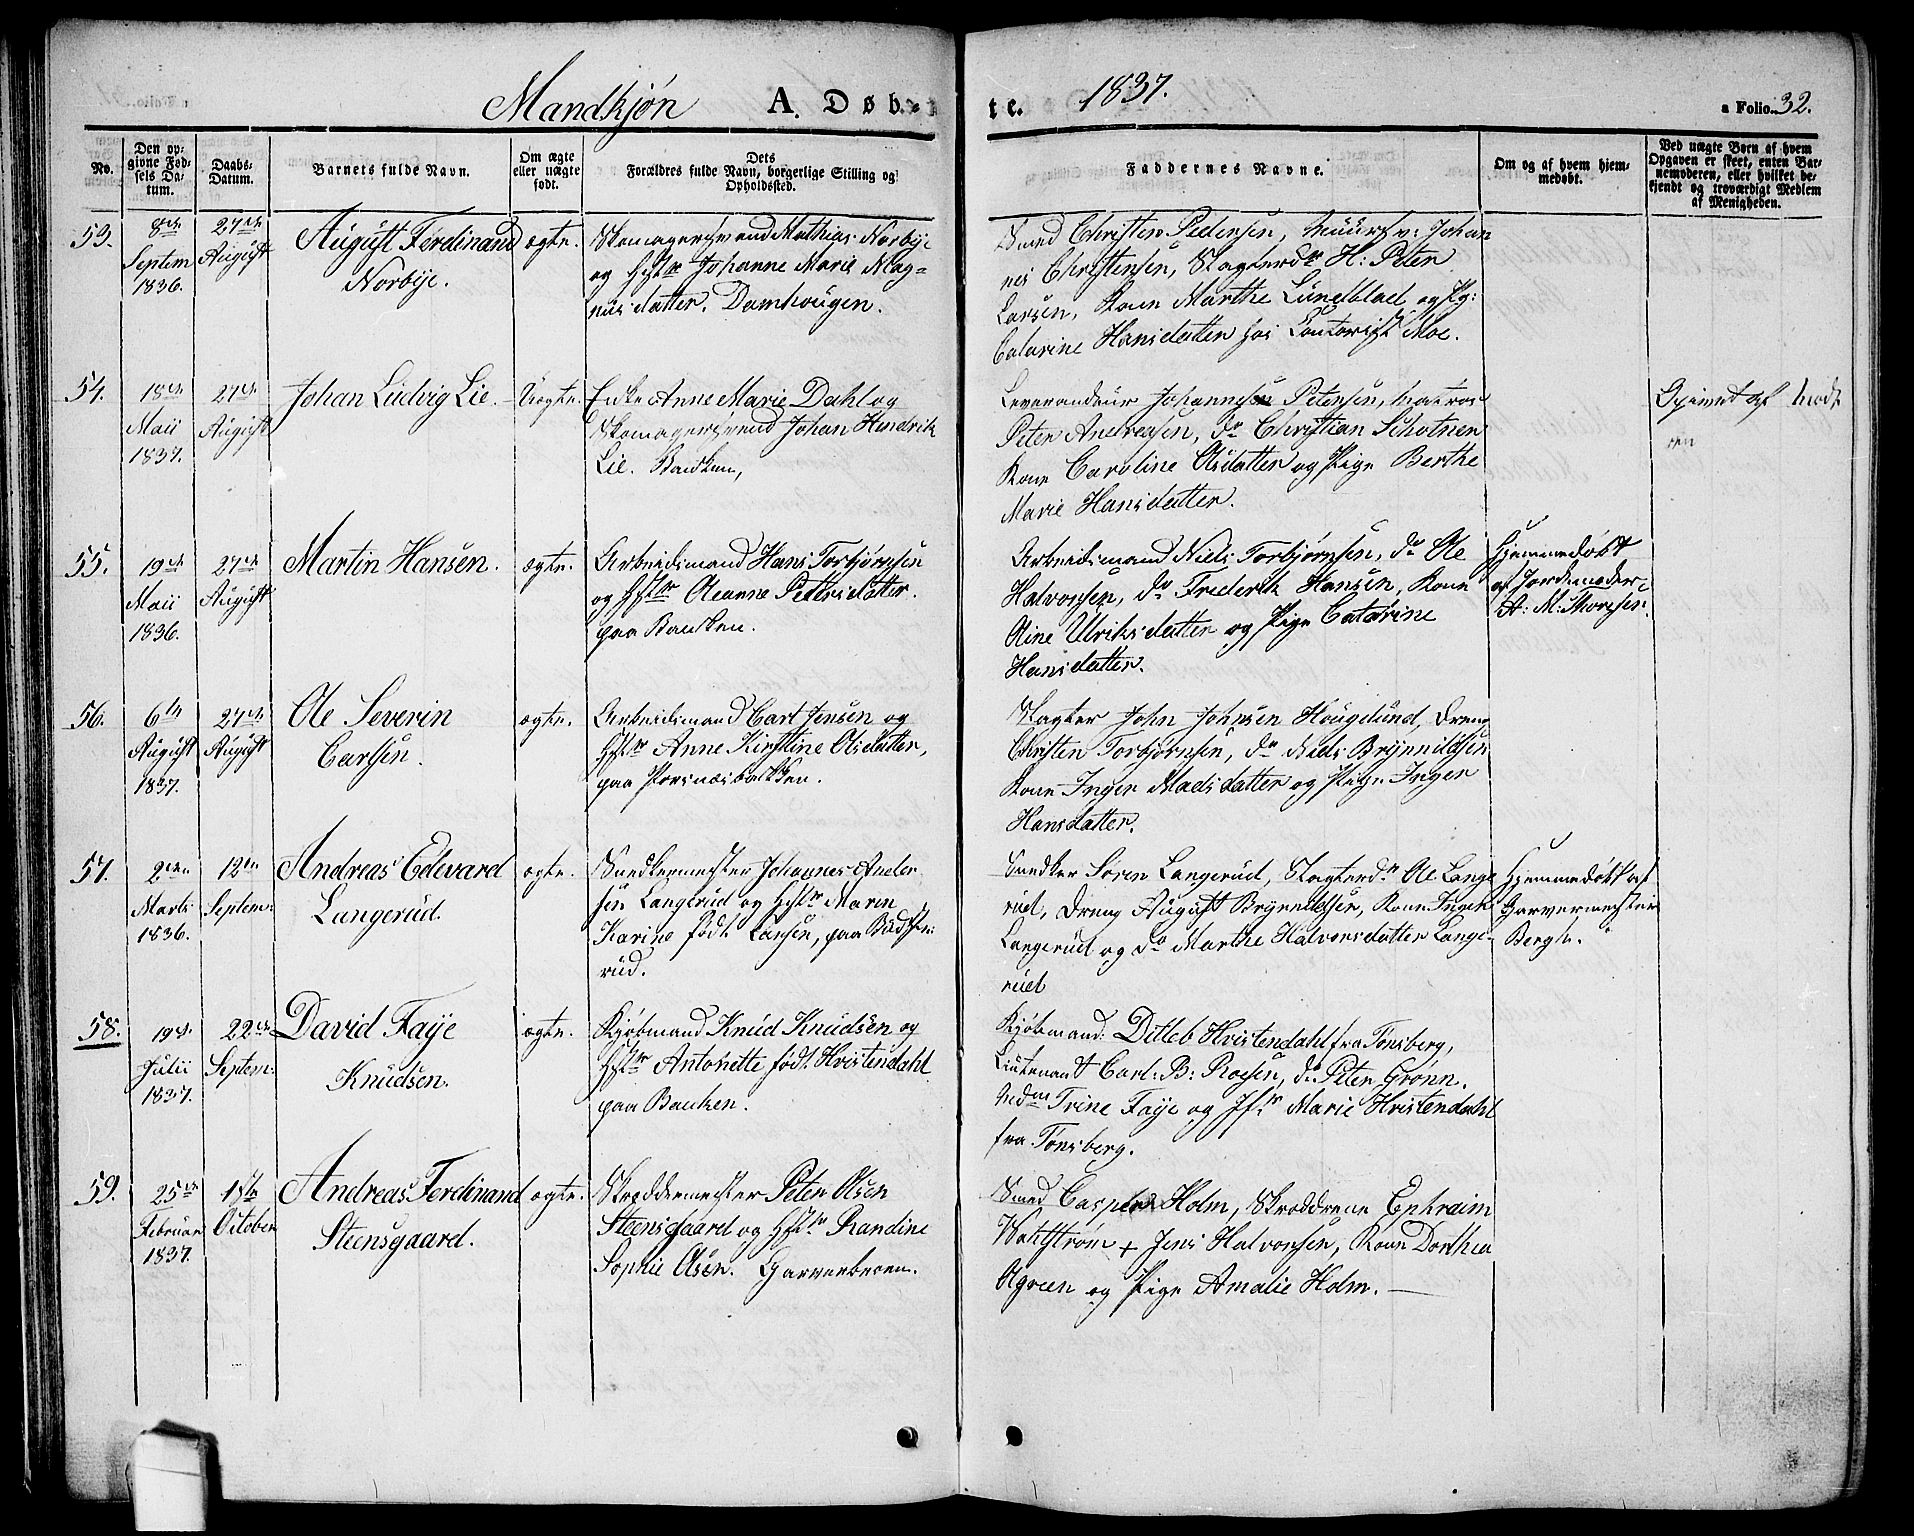 Mandkjøn A. Døb-
te. 1837. a Folio. 32.
No.
Den op-
givne Fød-
sels Da-
tum.
Daabs-
Datum.
Barnets fulde Navn.
Om ægte
eller uægte
født.
Dets
Forældres fulde Navn, borgerlige Stilling og
Opholdssted.
Faddernes Navne.
Om og af hvem hjem-
medøbt.
Ved uægte Børn af hvem
Opgaven er skeet, enten Bar-
nemoderen, eller hvilket be-
kjendt og troværdigt Medlem
af Menigheden.
53.
8de
Septem
1836.
27de
August
August Ferdinand
Norbye.
ægte.
Skomagersvend Mathias Norbye
og Hstr Johanne Marie Mag-
nusdatter. Damhougen.
Smed Christen Pedersen, Muursv: Johan
nes Christensen, Slagterdr H: Peter
Larsen, Kone Marthe Lundblad og Pg:
Catarine Hansdatter hos Contorist Moe.
54.
18de
Maii
1837.
27de
August
Johan Ludvig Lie.
Uægte.
Enke Anne Marie Dahl og
Skomagersvend Johan Hendrik
Lie. Banken,
Leverandeur Johannesen Petersen, Matros
Peter Andreasen, do Christian Schotner
Kone Caroline Olsdatter og Pige Berthe
Marie Hansdatter.
Opgivet af Mode
ren
55.
19de
Maii
1836.
27de
August
Martin Hansen.
ægte.
Arbeidsmand Hans Torbjørnsen
og Hstr Oleanne Pettersdatter.
paa Banken.
Arbeidsmand Niels Torbjørnsen, do Ole
Halvorsen, do Frederik Hansen, Kone
Oline Ulriksdatter og Pige Catarine
Hansdatter.
Hjemmedøbt
af Jordemoder
A: M: Thoresen.
56.
6te
August
1837.
27de
August
Ole Severin
Carlsen.
ægte.
Arbeidsmand Carl Jensen og
Hstr Anne Kirstine Olsdatter,
paa Porsnesbakken.
Slagter John Johnsen Houglund, Dreng
Christen Torbjørnsen, do Niels Brynnildsen
Kone Inger Madsdatter og Pige Inger
Hansdatter.
57.
2den
Marts
1836.
12te
Septem:
Andreas Edevard
Langerud.
ægte.
Snedkermester Johannes Ander
sen Langerud og Hstr Maren
Karine født Larsen, paa Budste-
rud.
Snedker Søren Langerud, Slagterdr Ole Lange
rud, Dreng August Brynnildsen, Kone Inger
Langerud og do Marthe Halvorsdatter Lange-
rud
Hjemmedøbt af
Garvermester
Bergh.
58.
19de
Julii
1837.
22de
Septem:
David Faye
Knudsen.
ægte.
Kjøbmand Knud Knudsen og
Hstr Antonette født Hvistendahl
paa Banken.
Kjøbmand: Ditleb Hvistendahl fra Tønsberg,
Lieutenant Carl: B: Roesen, do Peter Grønn.
Mdm Trine Faye og Jfr Marie Hvistendahl
fra Tønsberg.
59.
25de
Februar
1837.
1ste
October
Andreas Ferdinand
Steensgaard.
ægte.
Skræddermester Peter Olsen
Steensgaard og Hstr Randine
Sophie Olsen. Garverberen.
Smed Casper Holm, Skræddrene Ephraim
Wahlstrøm + Jens Halvorsen, Kone Dorthea
Agreen og Pige Amalie Holm. —